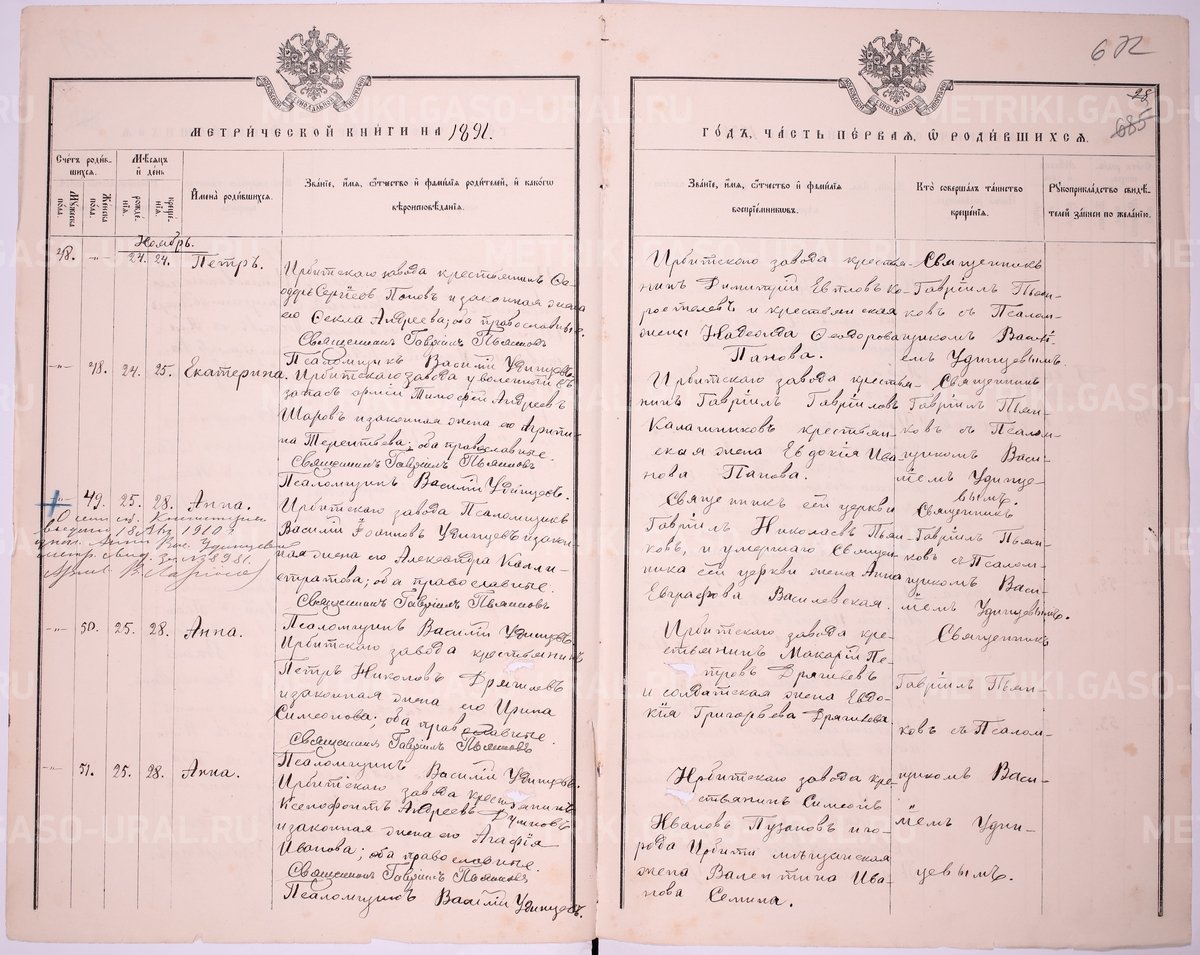 672
28
685
МЕТРИЧЕСКОЙ КНИГИ НА 1891.
ГОДЪ, ЧАСТЬ ПЕРВАЯ, Ѡ РОДИВШИХСЯ.
Счетъ родившихся.
Мужеска пола.
Женска пола.
Мѣсяцъ и день
рожденія.
крещенія.
Имена родившихся.
Званіе, имя, отчество и фамилія родителей, и какого
вѣроисповѣданія.
Званіе, имя, отчество и фамилія
воспріемниковъ.
Кто совершалъ таинство
крещенія.
Рукоприкладство свидѣ-
телей записи по желанію.
Ноябрь.
48. -"- 24. 24. Петръ.
Ирбитскаго завода крестьянинъ Ѳе-
одоръ Сергіевъ Поповъ и законная жена
его Ѳекла Андреева; оба православные.
Священникъ Гавріилъ Пьянковъ
Псаломщикъ Василій Удинцевъ.
Ирбитскаго завода крестья-
нинъ Димитрій Евпловъ Ко-
ростелевъ и крестьянская
женщ Надежда Ѳеодорова
Панова.
Священникъ
Гавріилъ Пьян-
ковъ съ Псалом-
щикомъ Васи-
емъ Удинцевымъ.
-"- 48. 24. 25. Екатерина.
Ирбитскаго завода уволенный въ
запасъ арміи Тимофей Андреевъ
Шаровъ и законная жена его Агрипи-
на Терентьева; оба православные.
Священникъ Гавріилъ Пьянковъ
Псаломщикъ Василій Удинцевъ.
Ирбитскаго завода крестья-
нинъ Гавріилъ Гавріиловъ
Калашниковъ крестьян-
ская жена Евдокія Ива-
нова Панова.
Священникъ
Гавріилъ Пьян-
ковъ съ Псалом-
щикомъ Васи-
іемъ Удинце-
вымъ.
-"- 49. 25. 28. Анна.
18 1910
Ирбитскаго завода Псаломщикъ
Василій Іоанновъ Удинцевъ и закон-
ная жена его Александра Калли-
стратова; оба православные.
Священникъ Гавріилъ Пьянковъ
Псаломщикъ Василій Удинцевъ
Священникъ сей церкви
Гавріилъ Николаевъ Пьян-
ковъ, и умершаго Священ-
ника сей церкви жена Анна
Евграфова Василевская.
Священникъ
Гавріилъ Пьян-
ковъ съ Псалом-
щикомъ Васи-
ліемъ Удинцевымъ.
-"- 50. 25. 28. Анна.
Ирбитскаго завода крестьянинъ
Петръ Николовъ Дрягилевъ
и законная жена его Ирина
Симеонова; оба православные.
Священникъ Гавріилъ Пьянковъ
Псаломщикъ Василій Удинцевъ.
Ирбитскаго завода кре-
стьянинъ Макарій Пе-
тровъ Дрягилевъ
и солдатская жена Евдо-
кія Григорьева Дрягилева
Священникъ
Гавріилъ Пьян-
ковъ съ Псалом-
-"- 51. 25. 28. Анна.
Ирбитскаго завода крестьянинъ
Ксенофонтъ Андреевъ
и законная жена его Агафія
Иванова; оба православные.
Священникъ Гавріилъ Пьянковъ
Псаломщикъ Василій Удинцевъ.
Ирбитскаго завода кре-
стьянинъ Симеонъ
Ивановъ Пузановъ и го-
рода Ирбити мѣщанская
жена Валентина Ива-
нова Семина.
щикомъ Васи-
іемъ Удин-
цевымъ.
METRIKI.GASO-URAL.RU